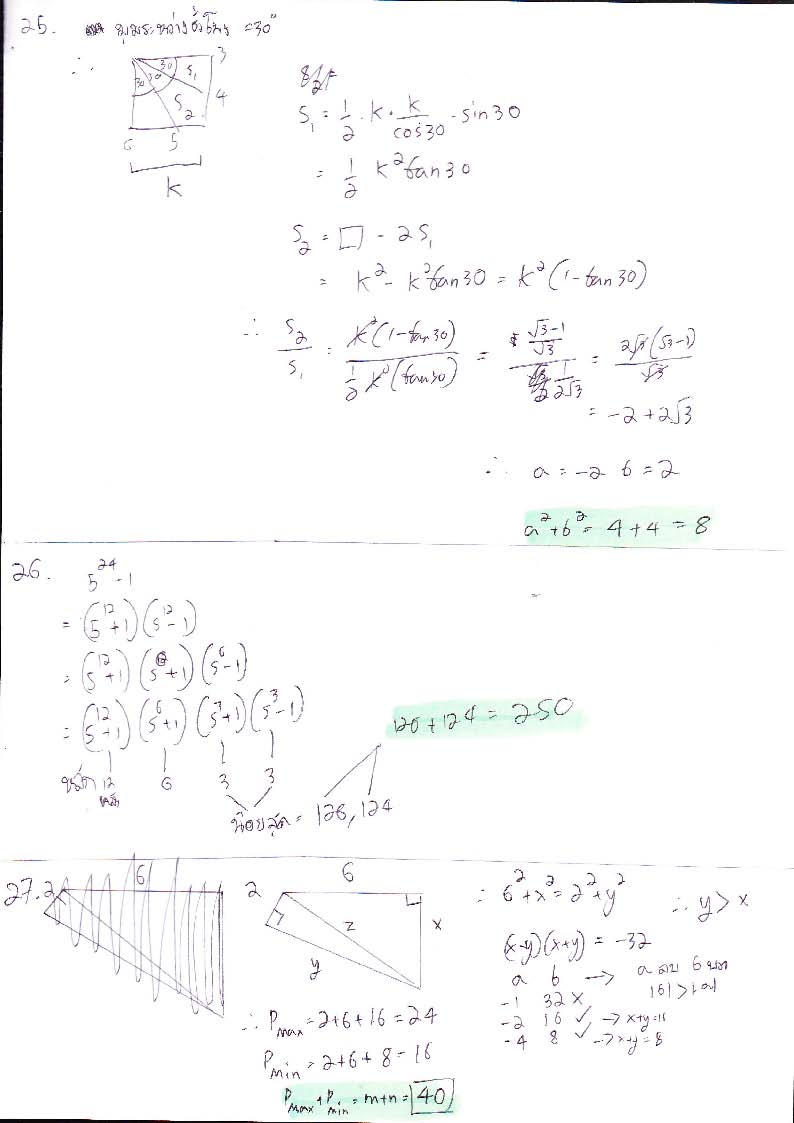 25. มุมระหว่างชั่วโมง = 30°
∴
30 3
30 30 S₁
S₂ 4
6 5
k
S₁ = 1/2 · k · k/cos30 · sin30
= 1/2 k² tan30
S₂ = □ - 2S₁
= k² - k² tan30 = k² (1 - tan30)
∴ S₂/S₁ = k²(1-tan30) / 1/2 k²(tan30) = (√3-1)/√3 / 1/2√3 = 2√3(√3-1)/√3
= -2 + 2√3
∴ a = -2 b = 2
a² + b² = 4 + 4 = 8
26. 5²⁴ - 1
= (5¹² + 1) (5¹² - 1)
= (5¹² + 1) (5⁶ + 1) (5⁶ - 1)
= (5¹² + 1) (5⁶ + 1) (5³ + 1) (5³ - 1)
12 6 3 3
หลัก
น้อยสุด = 126, 124
126 + 124 = 250
27. 2 6
2 6
x
z
y
∴ 6² + x² = 2² + y² ∴ y > x
(x-y)(x+y) = -32
a b → a ลบ b บวก
|b| > |a|
-1 32 ×
-2 16 ✓ → x+y = 16
-4 8 ✓ → x+y = 8
∴ Pmax = 2+6+16 = 24
Pmin = 2+6+8 = 16
Pmax + Pmin = m+n = 40